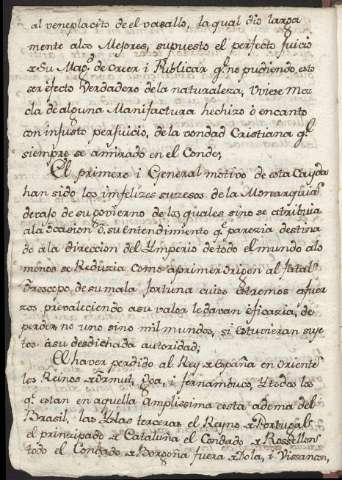 al veneplacito de el vasallo, la qual dio larga
mente alos Mejores, supuesto el perfecto juicio
a su Mag.d de Creer i Publicar q.e no pudiendo esto
ser efecto Verdadero de la naturaleza, Uviese mez
cla de alguna Manifactura hechizo o encanto
con injusto perjuicio, de la vondad Cristiana q.e
siempre se admirado en el Conde,
El primero i General motivo de esta Cayda
han sido los imfelizes sucesos de la Monarquia
de caso de su govierno de los quales sino se atribuia
ala ocasion o, su entendimiento q.e parezia destina
do ala direccion del Ymperio de todo el mundo alo
menos se Reduzia como a primer origen al fatal
de su mala fortuna cuios estremos esfuer
zos prevaleciendo a su valor le davan eficazia, de
perder no uno sino mil mundos, si estuvieran suje
tos a su desdichada autoridad,
El haver perdido al Rey de España en Oriente
los Reinos de Ormuz, Goa, i fernambuco, Y todos los
q.e estan en aquella amplissima costa, ademas del
Brasil, las Yslas terceras el Reyno de Portugal
el principado de Cataluña el Condado de Rosellon
todo el Condado de Borgoña fuera de Dola, i Visanzon,